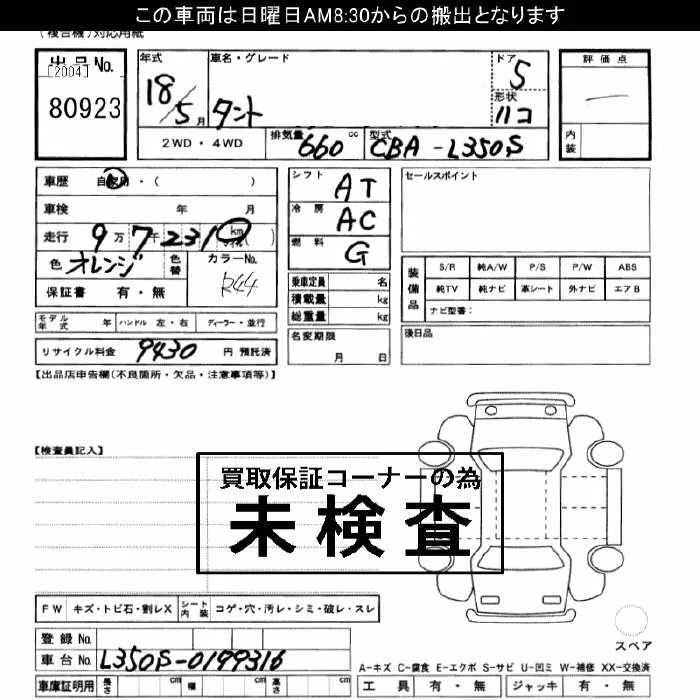 この車両は日曜日AM8:30からの搬出となります
(複合機)対応用紙
出品No.
[2004]
80923
年式
18/5月
車名・グレード
タント
ドア
5
形状
ハコ
2WD・4WD
排気量
660 cc
型式
CBA-L350S
評価点
内装
車歴 自家用・( )
車検 年 月
走行 9万7千231 km マイル( )
色 オレンジ
色替
カラーNo.
R44
保証書 有・無
シフト AT
冷房 AC
燃料 G
乗車定員 名
積載量 kg
総重量 kg
セールスポイント
装備品
S/R 純A/W P/S P/W ABS
純TV 純ナビ 革シート 外ナビ エアB
ナビ型番:
モデル年式 年 ハンドル 左・右 ディーラー・並行
名変期限
月 日
後日品
リサイクル料金 9430 円 預託済
【出品店申告欄(不良箇所・欠品・注意事項等)】
【検査員記入】
買取保証コーナーの為
未検査
FW キズ・トビ石・割レX シート内装 コゲ・穴・汚レ・シミ・破レ・スレ
スペア
登録No.
車台No. L350S-0199316
A-キズ C-腐食 E-エクボ S-サビ U-凹ミ W-補修 XX-交換済
車庫証明用 長さ cm 幅 cm 高さ cm
工具 有・無 ジャッキ 有・無